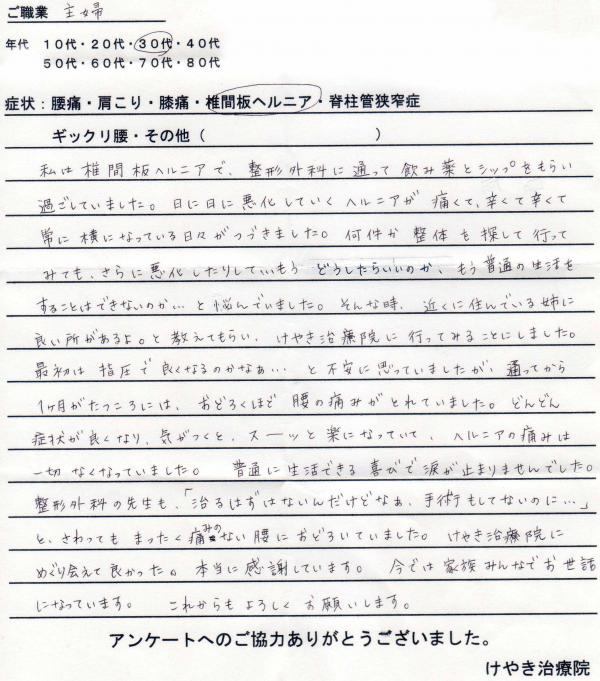 ご職業 主婦
年代 10代・20代・30代・40代
50代・60代・70代・80代
症状：腰痛・肩こり・膝痛・椎間板ヘルニア・脊柱管狭窄症
ギックリ腰・その他（ ）
私は椎間板ヘルニアで、整形外科に通って飲み薬とシップをもらい
過ごしていました。日に日に悪化していくヘルニアが痛くて、辛くて辛くて
常に横になっている日々がつづきました。何件か整体を探して行って
みても、さらに悪化したりしていもう どうしたらいいのか、もう普通の生活を
することはできないのか…と悩んでいました。そんな時、近くに住んでいる姉に
良い所があるよ。と教えてもらい、けやき治療院に行ってみることにしました。
最初は指圧で良くなるのかなぁ…と不安に思っていましたが、通ってから
1ヶ月がたつころには、おどろくほど腰の痛みがとれていました。どんどん
症状が良くなり、気がつくと、スーッと楽になっていて、ヘルニアの痛みは
一切なくなっていました。 普通に生活できる喜びで涙が止まりませんでした。
整形外科の先生も、「治るはずはないんだけどなぁ、手術もしてないのに…」
と、さわってもまったく痛みのない腰におどろいていました。けやき治療院に
めぐり会えて良かった。本当に感謝しています。今では家族みんなでお世話
になっています。 これからもよろしくお願いします。
アンケートへのご協力ありがとうございました。
けやき治療院